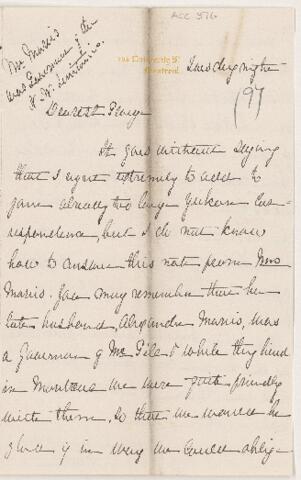 ACC 576
Mr Morris
was Governor of the
N. W. Territories.
Tuesday night
Montreal
(97
Dearest George
It goes without saying
that I regret extremely to add to
your already too large Yukon Cor-
respondence, but I do not know
how to answer this note from Mrs
Morris. You may remember that her
late husband, Alexander Morris, was
a Governor of McGill & while they lived
in Montreal we were quite friendly
with them, so that we would be
glad if in any way we could oblige